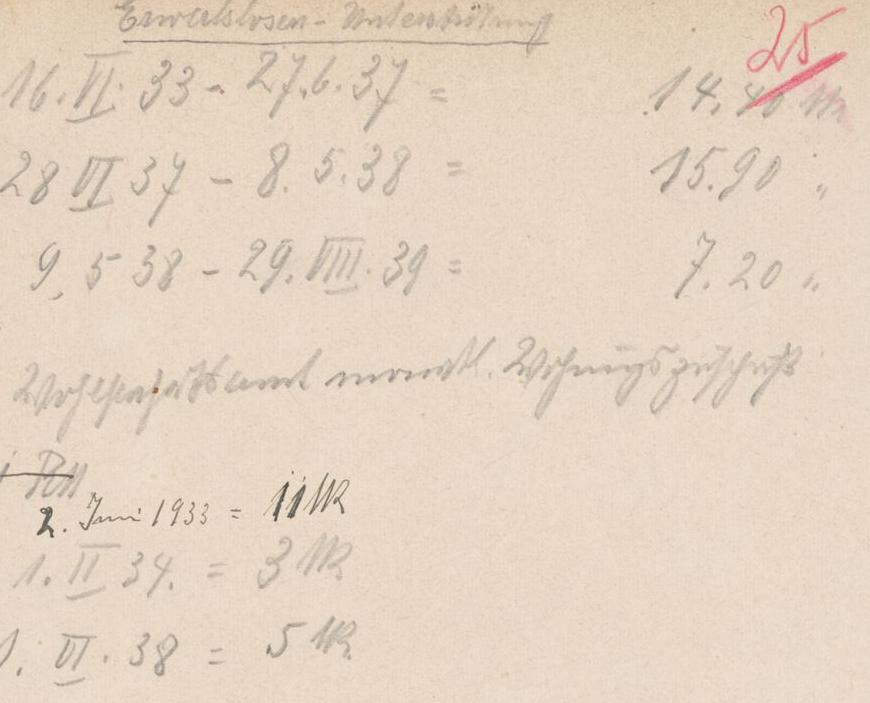 Erwerbslosen-Unterstützung
25
16. VI. 33 - 27.6.37 = 14.40 M
28 VI 37 - 8. 5.38 = 15.90 "
9. 5 38 - 29. VIII. 39 = 7.20 "
Wohlfahrtsamt monatl. Wohnungszuschuß
2. Juni 1933 = 11 M
1. II 34. = 3 M
1. VI. 38 = 5 M.